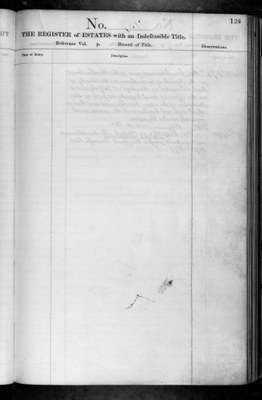 124
No.
THE REGISTER of ESTATES with an Indefeasible Title.
Reference Vol. p. Record of Title.
Observations.
Date of Entry.
Description